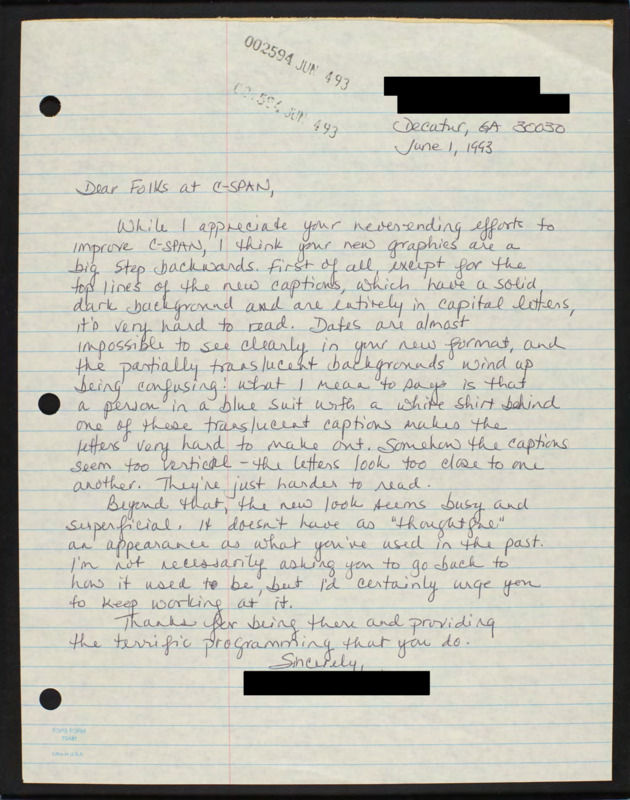 002594 JUN 493
002594 JUN 493
Decatur, GA 30030
June 1, 1993
Dear Folks at C-SPAN,
While I appreciate your never-ending efforts to
improve C-SPAN, I think your new graphics are a
big step backwards. First of all, except for the
top lines of the new captions, which have a solid,
dark background and are entirely in capital letters,
it's very hard to read. Dates are almost
impossible to see clearly in your new format, and
the partially translucent backgrounds wind up
being confusing: what I mean to say is that
a person in a blue suit with a white shirt behind
one of these translucent captions makes the
letters very hard to make out. Somehow the captions
seem too vertical - the letters look too close to one
another. They're just harder to read.
Beyond that, the new look seems busy and
superficial. It doesn't have as "thoughtful"
an appearance as what you've used in the past.
I'm not necessarily asking you to go back to
how it used to be, but I'd certainly urge you
to keep working at it.
Thanks for being there and providing
the terrific programming that you do.
Sincerely,
TOPS FORM